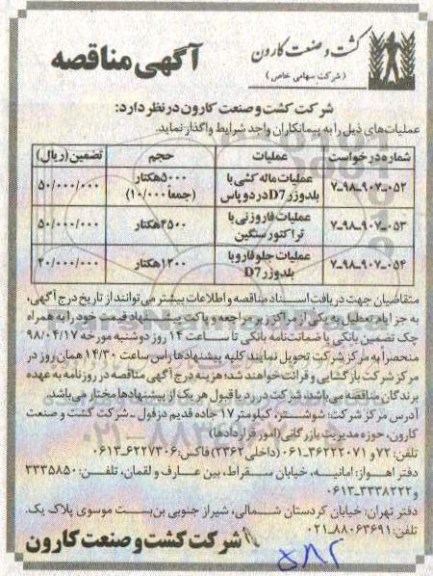 کشت و صنعت کارون
(شرکت سهامی خاص)
آگهی مناقصه
شرکت کشت و صنعت کارون در نظر دارد:
عملیات‌های ذیل را به پیمانکاران واجد شرایط واگذار نماید.
شماره درخواست عملیات حجم تضمین (ریال)
۷-۹۸-۹۰۷-۰۵۲ عملیات ماله کشی با بلدوزر D7 در دو پاس ۵۰۰۰ هکتار (جمعاً ۱۰/۰۰۰) ۵۰/۰۰۰/۰۰۰
۷-۹۸-۹۰۷-۰۵۳ عملیات فاروزنی با تراکتور سنگین ۲۵۰۰ هکتار ۵۰/۰۰۰/۰۰۰
۷-۹۸-۹۰۷-۰۵۴ عملیات جلو فارو با بلدوزر D7 ۱۲۰۰ هکتار ۲۰/۰۰۰/۰۰۰
متقاضیان جهت دریافت اسناد مناقصه و اطلاعات بیشتر می توانند از تاریخ درج آگهی،
به جز ایام تعطیل به یکی از مراکز زیر مراجعه و پاکت پیشنهاد قیمت خود را به همراه
چک تضمین بانکی یا ضمانتنامه بانکی تا ساعت ۱۴ روز دوشنبه مورخه ۹۸/۰۴/۱۷
منحصراً به مرکز شرکت تحویل نمایند کلیه پیشنهادها راس ساعت ۱۴/۳۰ همان روز در
مرکز شرکت بازگشایی و قرائت خواهند شد؛ هزینه درج آگهی مناقصه در روزنامه به عهده
برندگان مناقصه می باشد، شرکت در رد یا قبول هر یک از پیشنهادها مختار می باشد.
آدرس مرکز شرکت: شوشتر، کیلومتر ۱۷ جاده قدیم دزفول - شرکت کشت و صنعت
کارون، حوزه مدیریت بازرگانی (امور قراردادها)
تلفن: ۷۲ و ۳۶۲۲۲۰۷۱-۰۶۱ (داخلی ۲۳۶۲) فاکس: ۶۲۲۷۳۰۶-۰۶۱۳
دفتر اهواز: امانیه، خیابان سقراط، بین عارف و لقمان، تلفن: ۳۳۳۵۸۵۰
و ۳۳۳۸۲۲۲-۰۶۱۳
دفتر تهران: خیابان کردستان شمالی، شیراز جنوبی بن‌بست موسوی پلاک یک.
تلفن: ۸۸۰۶۳۶۹۱-۰۲۱
شرکت کشت و صنعت کارون